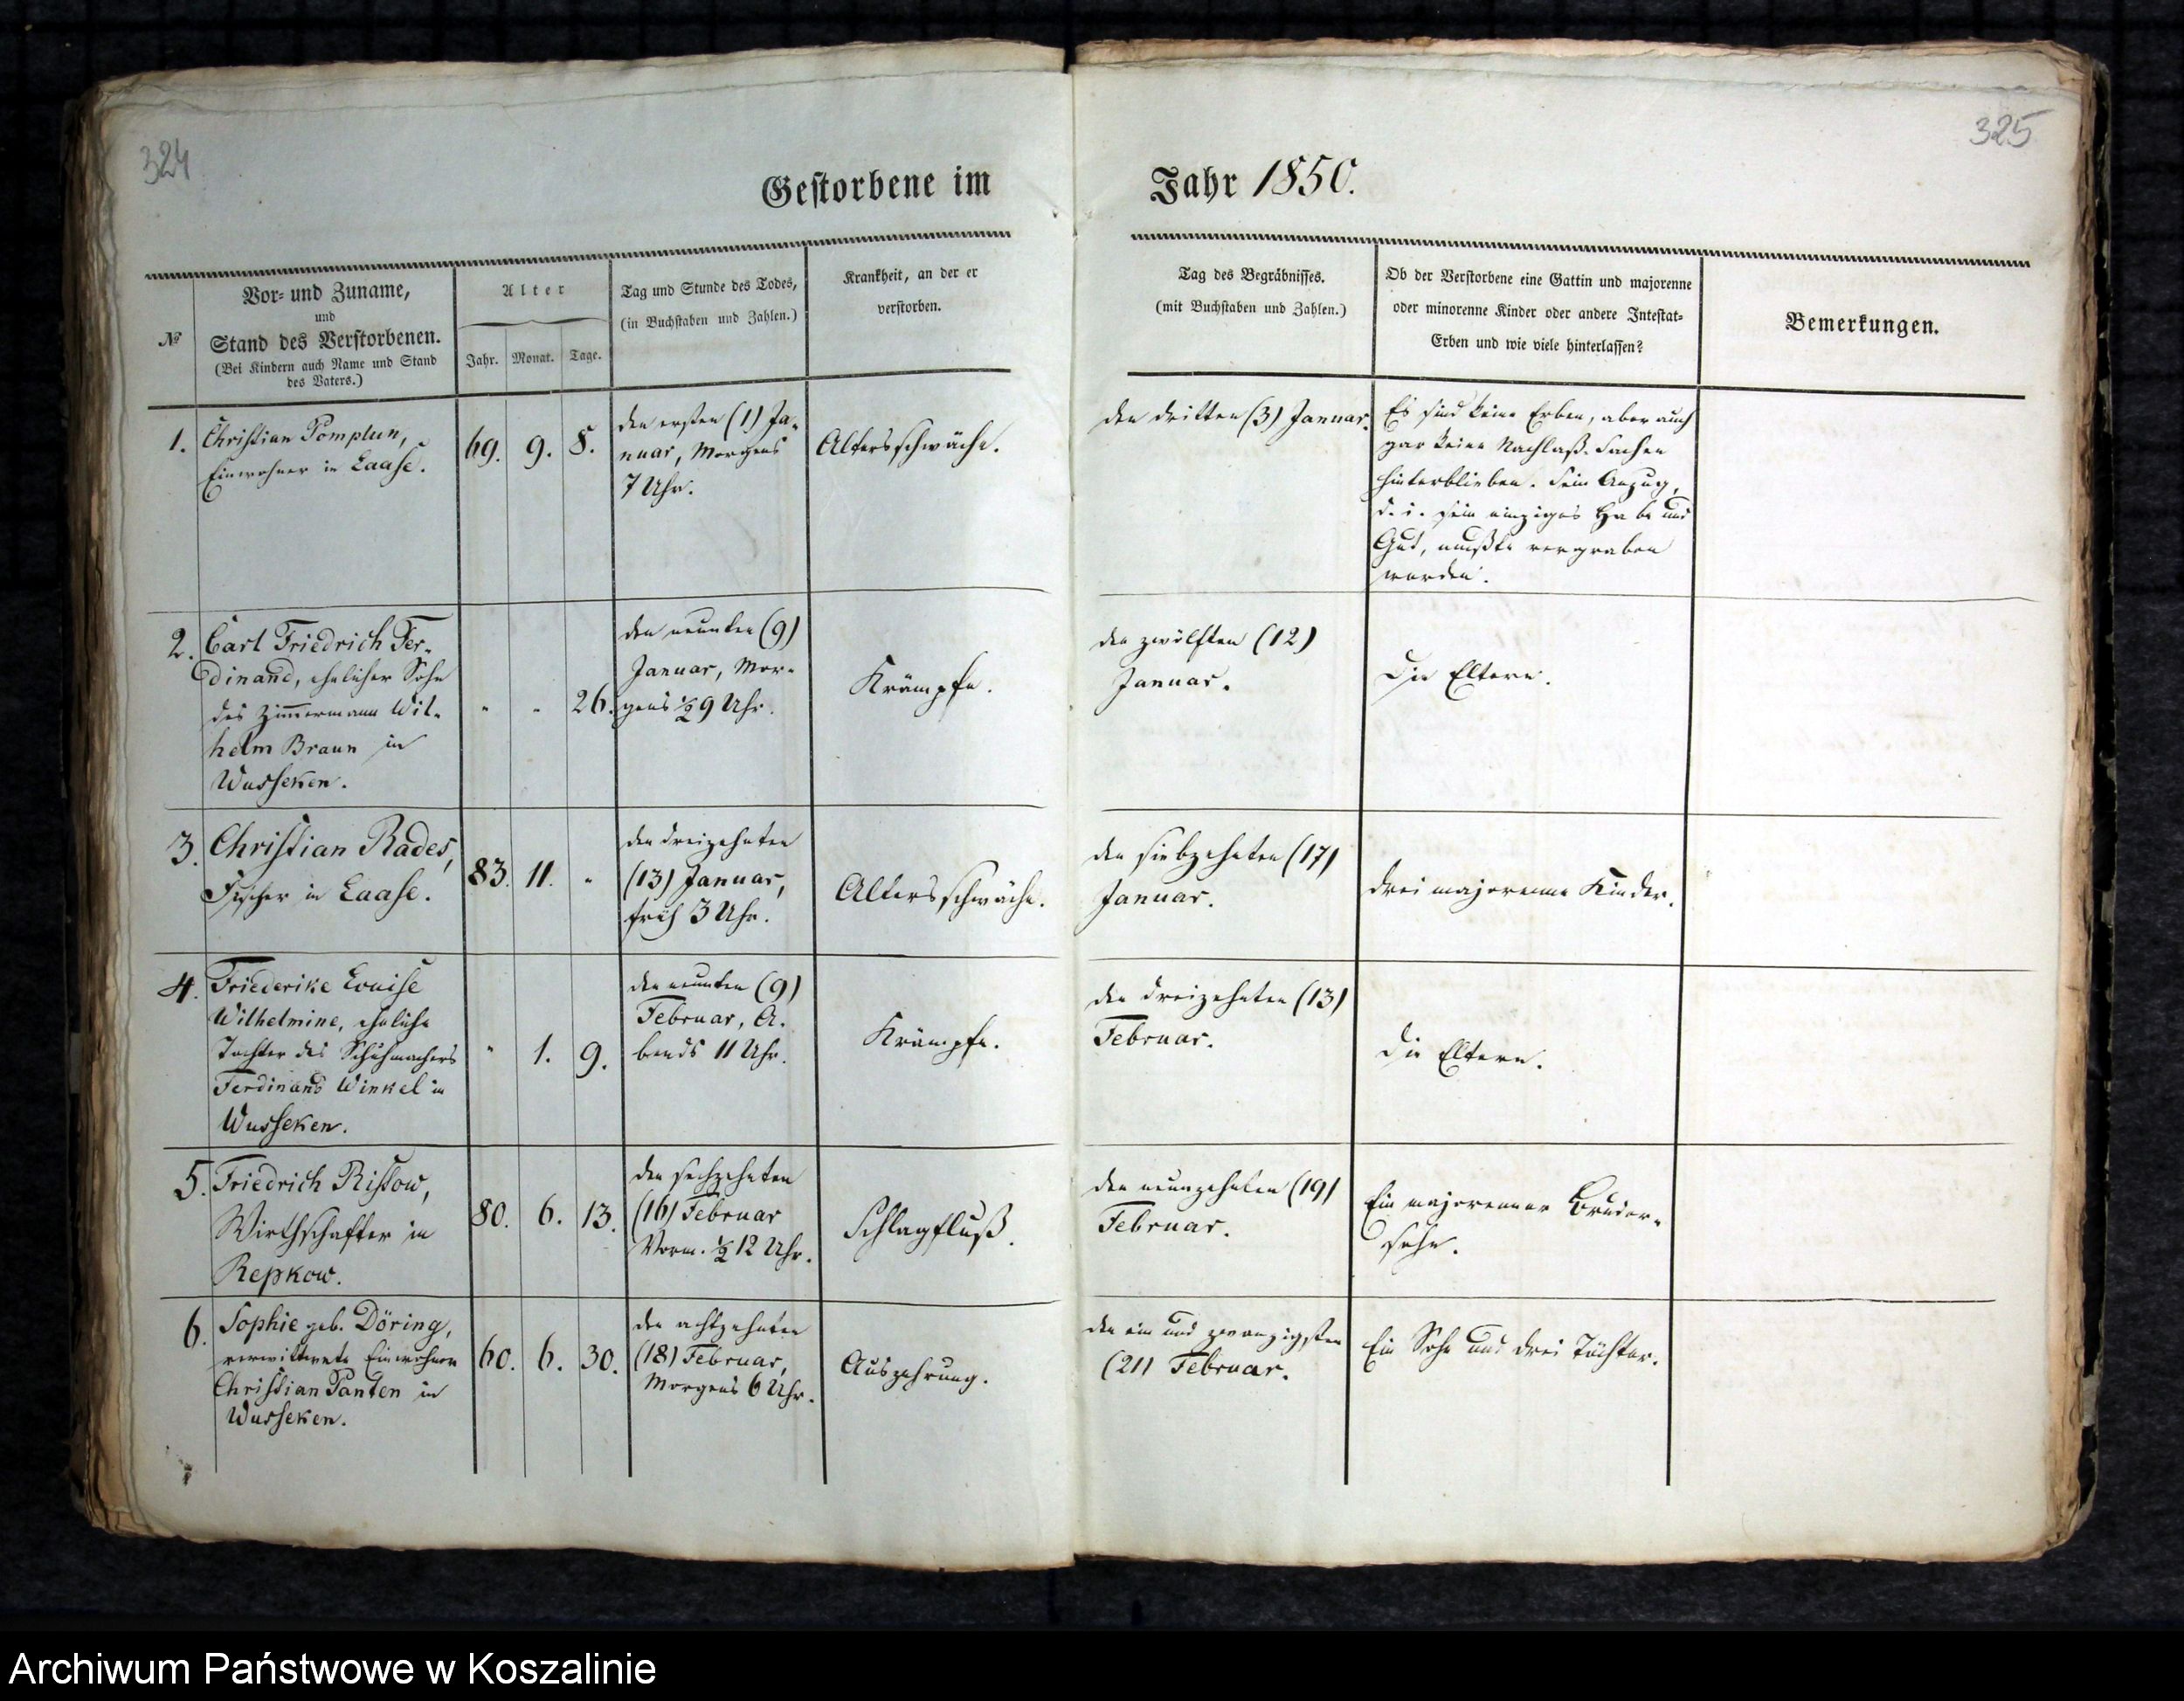 324
325
Gestorbene im
Jahr 1850.
№
Vor- und Zuname,
und
Stand des Verstorbenen.
(Bei Kindern auch Name und Stand
des Vaters.)
Alter
Jahr.
Monat.
Tage.
Tag und Stunde des Todes,
(in Buchstaben und Zahlen.)
Krankheit, an der er
verstorben.
Tag des Begräbnisses.
(mit Buchstaben und Zahlen.)
Ob der Verstorbene eine Gattin und majorenne
oder minorenne Kinder oder andere Intestat-
Erben und wie viele hinterlassen?
Bemerkungen.
1.
Christian Pomplun,
Einwohner in Laase.
69.
9.
8.
den ersten (1) Ja-
nuar, Morgens
7 Uhr.
Altersschwäche.
den dritten (3) Januar.
Es sind keine Erben, aber auch
gar keine Nachlaß-Sachen
hinterblieben. Sein Anzug,
d. i. sein einziges Hab und
Gut, mußte vergraben
werden.
2.
Carl Friedrich Fer-
dinand, ehelicher Sohn
des Zimmermann Wil-
helm Braun in
Wusseken.
"
"
26.
den neunten (9)
Januar, Mor-
gens ½ 9 Uhr.
Krämpfe.
den zwölften (12)
Januar.
Die Eltern.
3.
Christian Rades,
Fischer in Laase.
83.
11.
"
den dreizehnten
(13) Januar,
früh 3 Uhr.
Altersschwäche.
den siebzehnten (17)
Januar.
drei majorenne Kinder.
4.
Friederike Louise
Wilhelmine, eheliche
Tochter des Schuhmachers
Ferdinand Winkel in
Wusseken.
"
1.
9.
den neunten (9)
Februar, A-
bends 11 Uhr.
Krämpfe.
den dreizehnten (13)
Februar.
die Eltern.
5.
Friedrich Ristow,
Wirthschafter in
Repkow.
80.
6.
13.
den sechzehnten
(16) Februar
Vorm. ½ 12 Uhr.
Schlagfluß.
den neunzehnten (19)
Februar.
Ein majorenner Bruder-
sohn.
6.
Sophie geb. Döring,
verwittwete Einwohner
Christian Panten in
Wusseken.
60.
6.
30.
den achtzehnten
(18) Februar,
Morgens 6 Uhr.
Auszehrung.
den ein und zwanzigsten
(21) Februar.
Ein Sohn und drei Töchter.
Archiwum Państwowe w Koszalinie